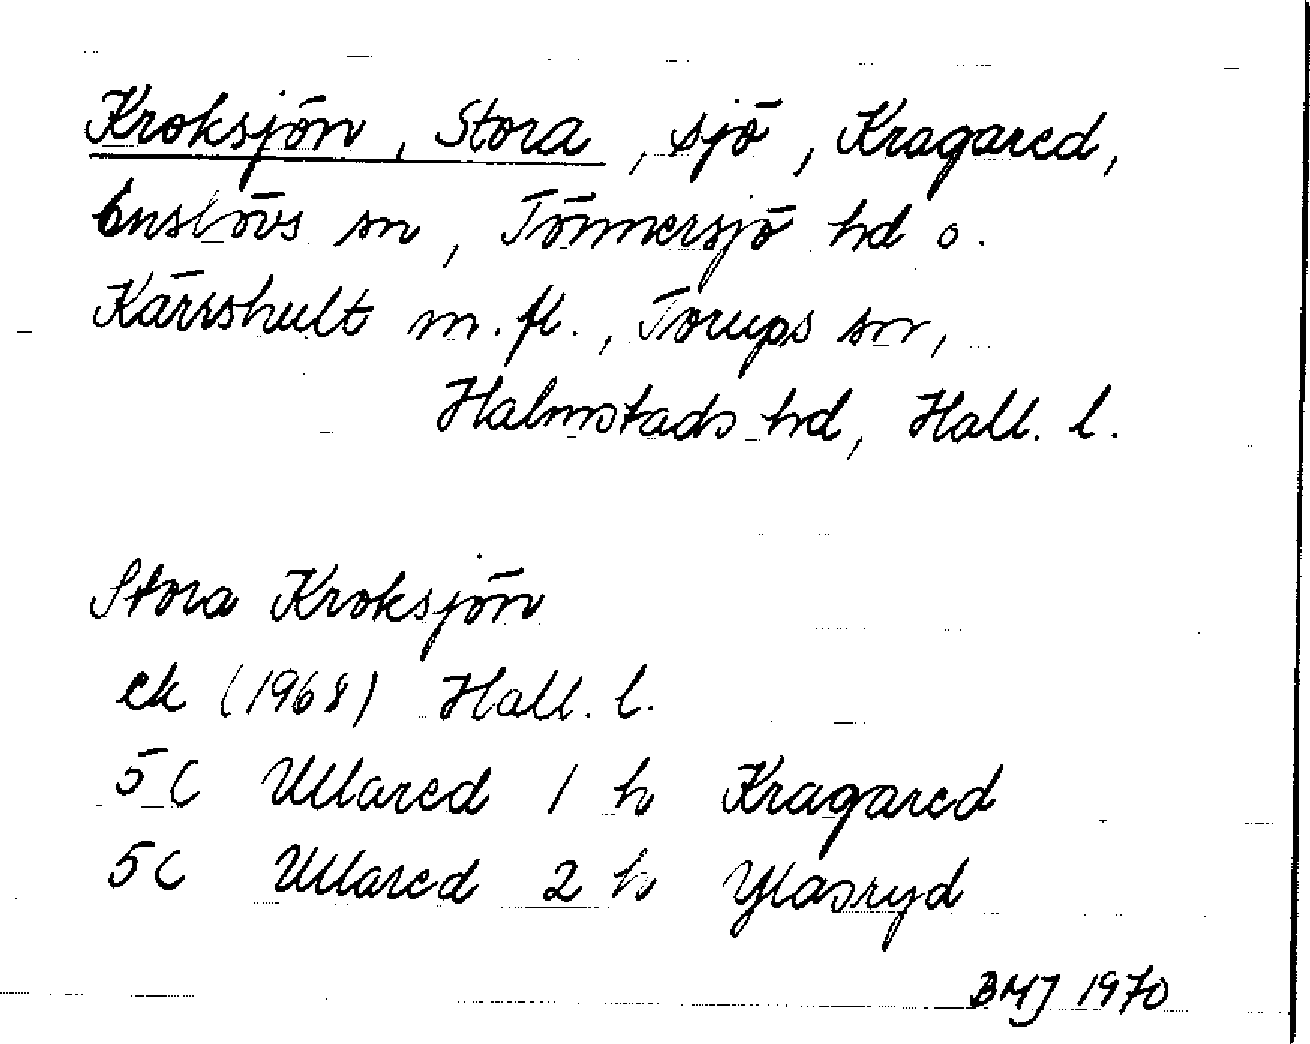 Kroksjön, Stora, sjö, Kragared,
Enslövs sn, Tönnersjö hd o.
Kärrshult m.fl., Torups sn,
Halmstads hd, Hall. l.
Stora Kroksjön
ek (1968) Hall. l.
5C Ullared 1 h Kragared
5C Ullared 2 h Ylasryd
BMJ 1970